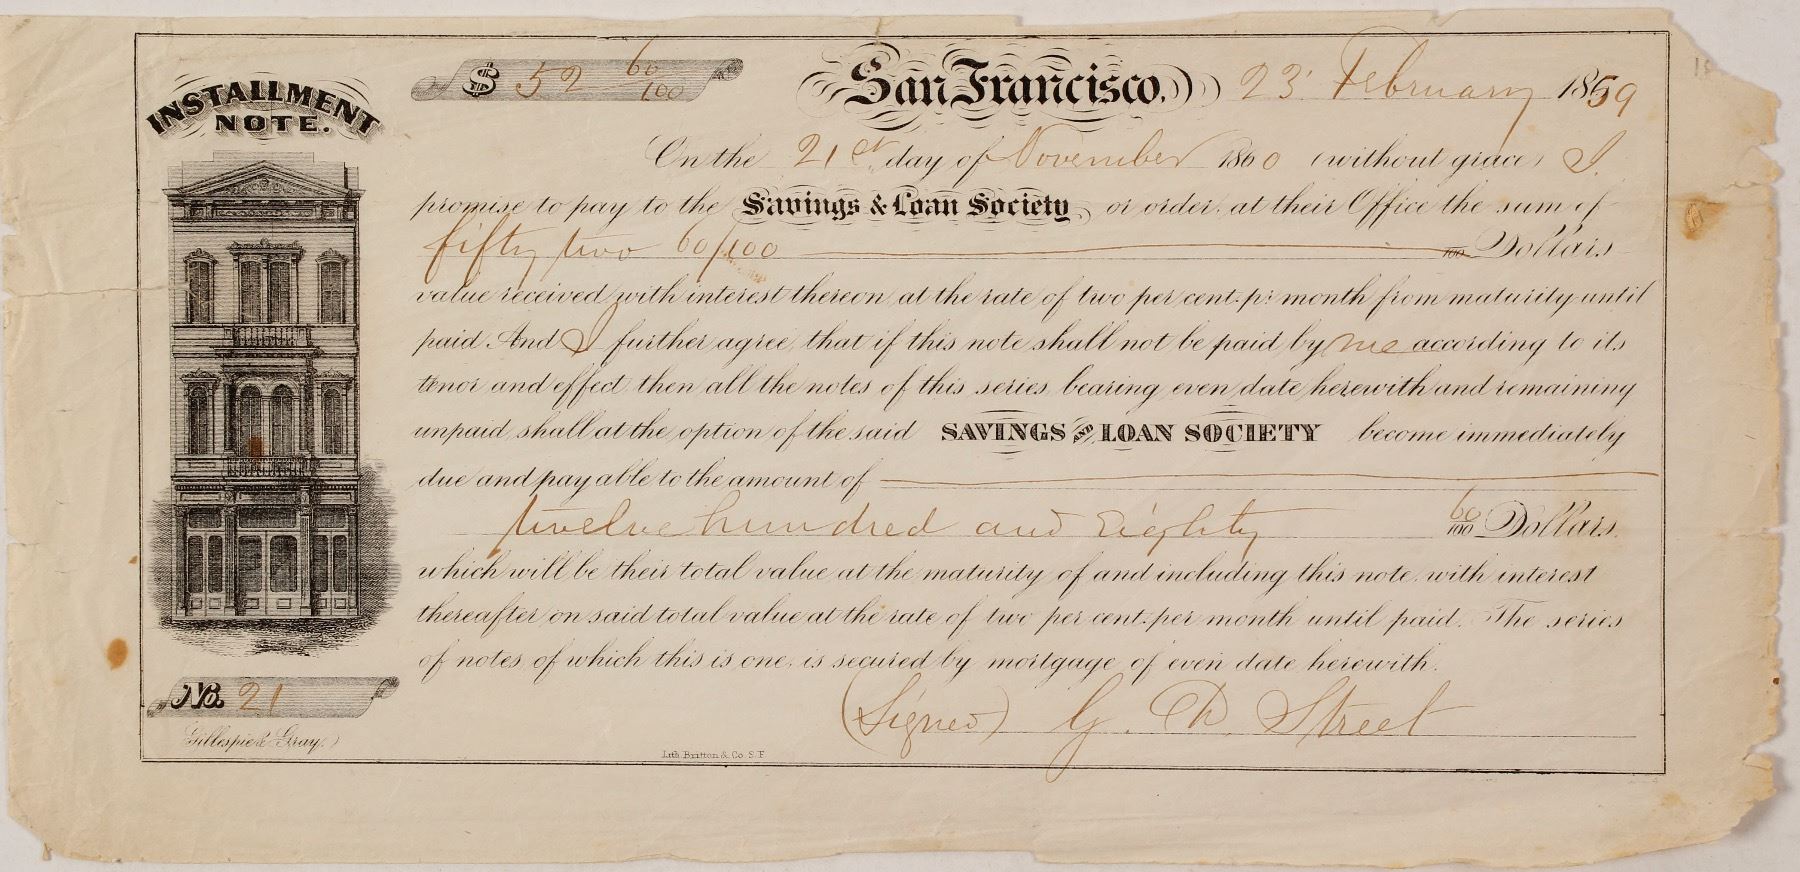 INSTALLMENT
NOTE.
$ 52 60/100
San Francisco, 23 February 1859
On the 21st day of November 1860 (without grace) I
promise to pay to the Savings & Loan Society or order, at their Office the sum of
fifty two 60/100 /100 Dollars
value received, with interest thereon at the rate of two per cent. pr. month from maturity until
paid. And I further agree, that if this note shall not be paid by me according to its
tenor and effect then all the notes of this series, bearing even date herewith and remaining
unpaid, shall at the option of the said SAVINGS AND LOAN SOCIETY become immediately
due and payable to the amount of
twelve hundred and Eighty 60/100 Dollars.
which will be their total value at the maturity of and including this note, with interest
thereafter on said total value at the rate of two per cent. per month until paid. The series
of notes, of which this is one, is secured by mortgage, of even date herewith.
No. 21
(Signed) G. D. Street
Gillespie & Gray.)
Lith. Britton & Co. S.F.